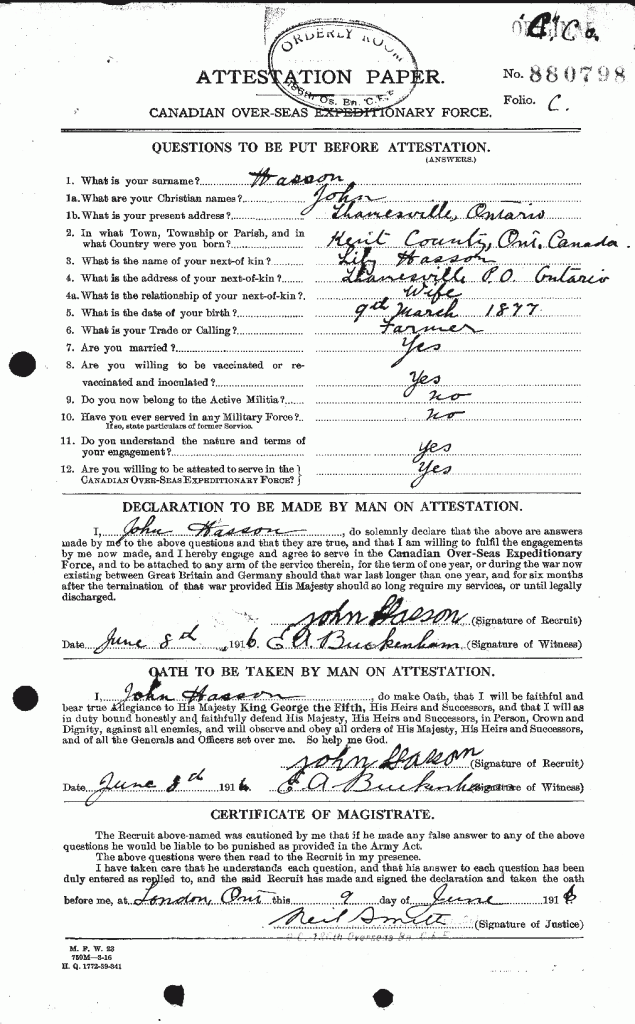 A, Co.
ORDERLY ROOM
Os. Bn. C.E.F.
ATTESTATION PAPER.
No. 880798
Folio. C.
CANADIAN OVER-SEAS EXPEDITIONARY FORCE.
QUESTIONS TO BE PUT BEFORE ATTESTATION.
(ANSWERS.)
1. What is your surname? Hasson
1a. What are your Christian names? John
1b. What is your present address? Thamesville, Ontario
2. In what Town, Township or Parish, and in
what Country were you born? Kent County, Ont. Canada.
3. What is the name of your next-of kin? Hasson
4. What is the address of your next-of-kin? Thamesville P.O. Ontario
4a. What is the relationship of your next-of-kin? Wife
5. What is the date of your birth? 9th March 1877
6. What is your Trade or Calling? Farmer
7. Are you married? Yes
8. Are you willing to be vaccinated or re-
vaccinated and inoculated? Yes
9. Do you now belong to the Active Militia? no
10. Have you ever served in any Military Force? no
If so, state particulars of former Service.
11. Do you understand the nature and terms of
your engagement? Yes
12. Are you willing to be attested to serve in the
CANADIAN OVER-SEAS EXPEDITIONARY FORCE? Yes
DECLARATION TO BE MADE BY MAN ON ATTESTATION.
I, John Hasson, do solemnly declare that the above are answers
made by me to the above questions and that they are true, and that I am willing to fulfil the engagements
by me now made, and I hereby engage and agree to serve in the Canadian Over-Seas Expeditionary
Force, and to be attached to any arm of the service therein, for the term of one year, or during the war now
existing between Great Britain and Germany should that war last longer than one year, and for six months
after the termination of that war provided His Majesty should so long require my services, or until legally
discharged.
John Hasson (Signature of Recruit)
Date June 8th 1916 E A Buckenham (Signature of Witness)
OATH TO BE TAKEN BY MAN ON ATTESTATION.
I, John Hasson, do make Oath, that I will be faithful and
bear true Allegiance to His Majesty King George the Fifth, His Heirs and Successors, and that I will as
in duty bound honestly and faithfully defend His Majesty, His Heirs and Successors, in Person, Crown and
Dignity, against all enemies, and will observe and obey all orders of His Majesty, His Heirs and Successors,
and of all the Generals and Officers set over me. So help me God.
John Hasson (Signature of Recruit)
Date June 8th 1916 E A Buckenham (Signature of Witness)
CERTIFICATE OF MAGISTRATE.
The Recruit above-named was cautioned by me that if he made any false answer to any of the above
questions he would be liable to be punished as provided in the Army Act.
The above questions were then read to the Recruit in my presence.
I have taken care that he understands each question, and that his answer to each question has been
duly entered as replied to, and the said Recruit has made and signed the declaration and taken the oath
before me, at London, Ont this 9 day of June 1916
Neil Smith (Signature of Justice)
M. F. W. 23
750M—3-16
H. Q. 1772-39-841